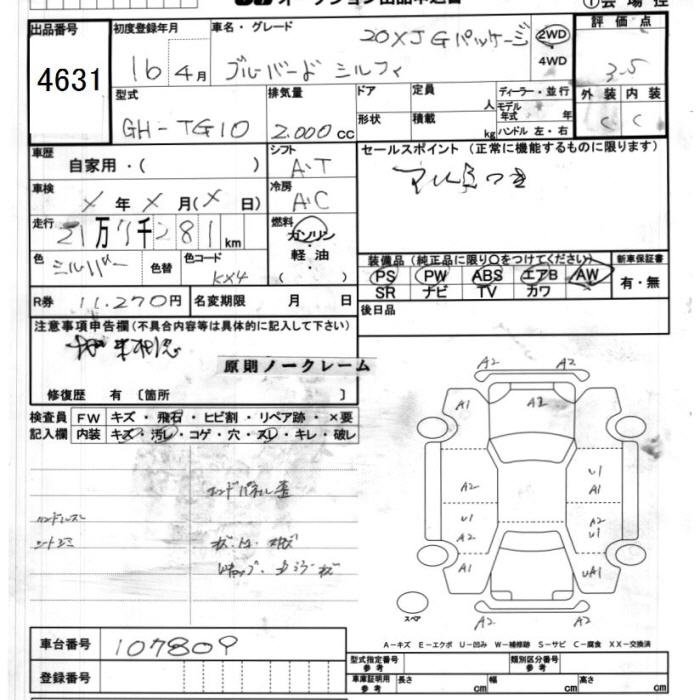 出品番号 初度登録年月 車名・グレード 評価点
4631 16 4月 ブルーバード シルフィ 20XJ Gパッケージ 2WD 4WD 3.5
型式 排気量 ドア 定員 人 ディーラー・並行 外装 内装
GH-TG10 2.000cc 形状 積載 kg モデル年式 年 ハンドル 左・右 C C
車歴 自家用・( ) シフト A・T セールスポイント (正常に機能するものに限ります)
車検 X年 X月(X日) 冷房 A・C
走行 21万7千281km 燃料 ガソリン・軽油・( )
色 シルバー 色替 色コード KX4
装備品(純正品に限り○をつけてください) 新車保証書
PS PW ABS エアB AW 有・無
SR ナビ TV カワ
R券 11.270円 名変期限 月 日 後日品
注意事項申告欄(不具合内容等は具体的に記入して下さい)
原則ノークレーム
修復歴 有〔箇所 〕
検査員 FW キズ・飛石・ヒビ割・リペア跡・×要
記入欄 内装 キズ・汚レ・コゲ・穴・スレ・キレ・破レ
A2 A2
A1 A2
U1
A2 A1
U1 A2
A2 U1
A1 UA1
A2 A2
スペア
A-キズ E-エクボ U-凹み W-補修跡 S-サビ C-腐食 XX-交換済
車台番号 107809
型式指定番号 参考 類別区分番号 参考
登録番号 車庫証明用 参考 長さ cm 幅 cm 高さ cm